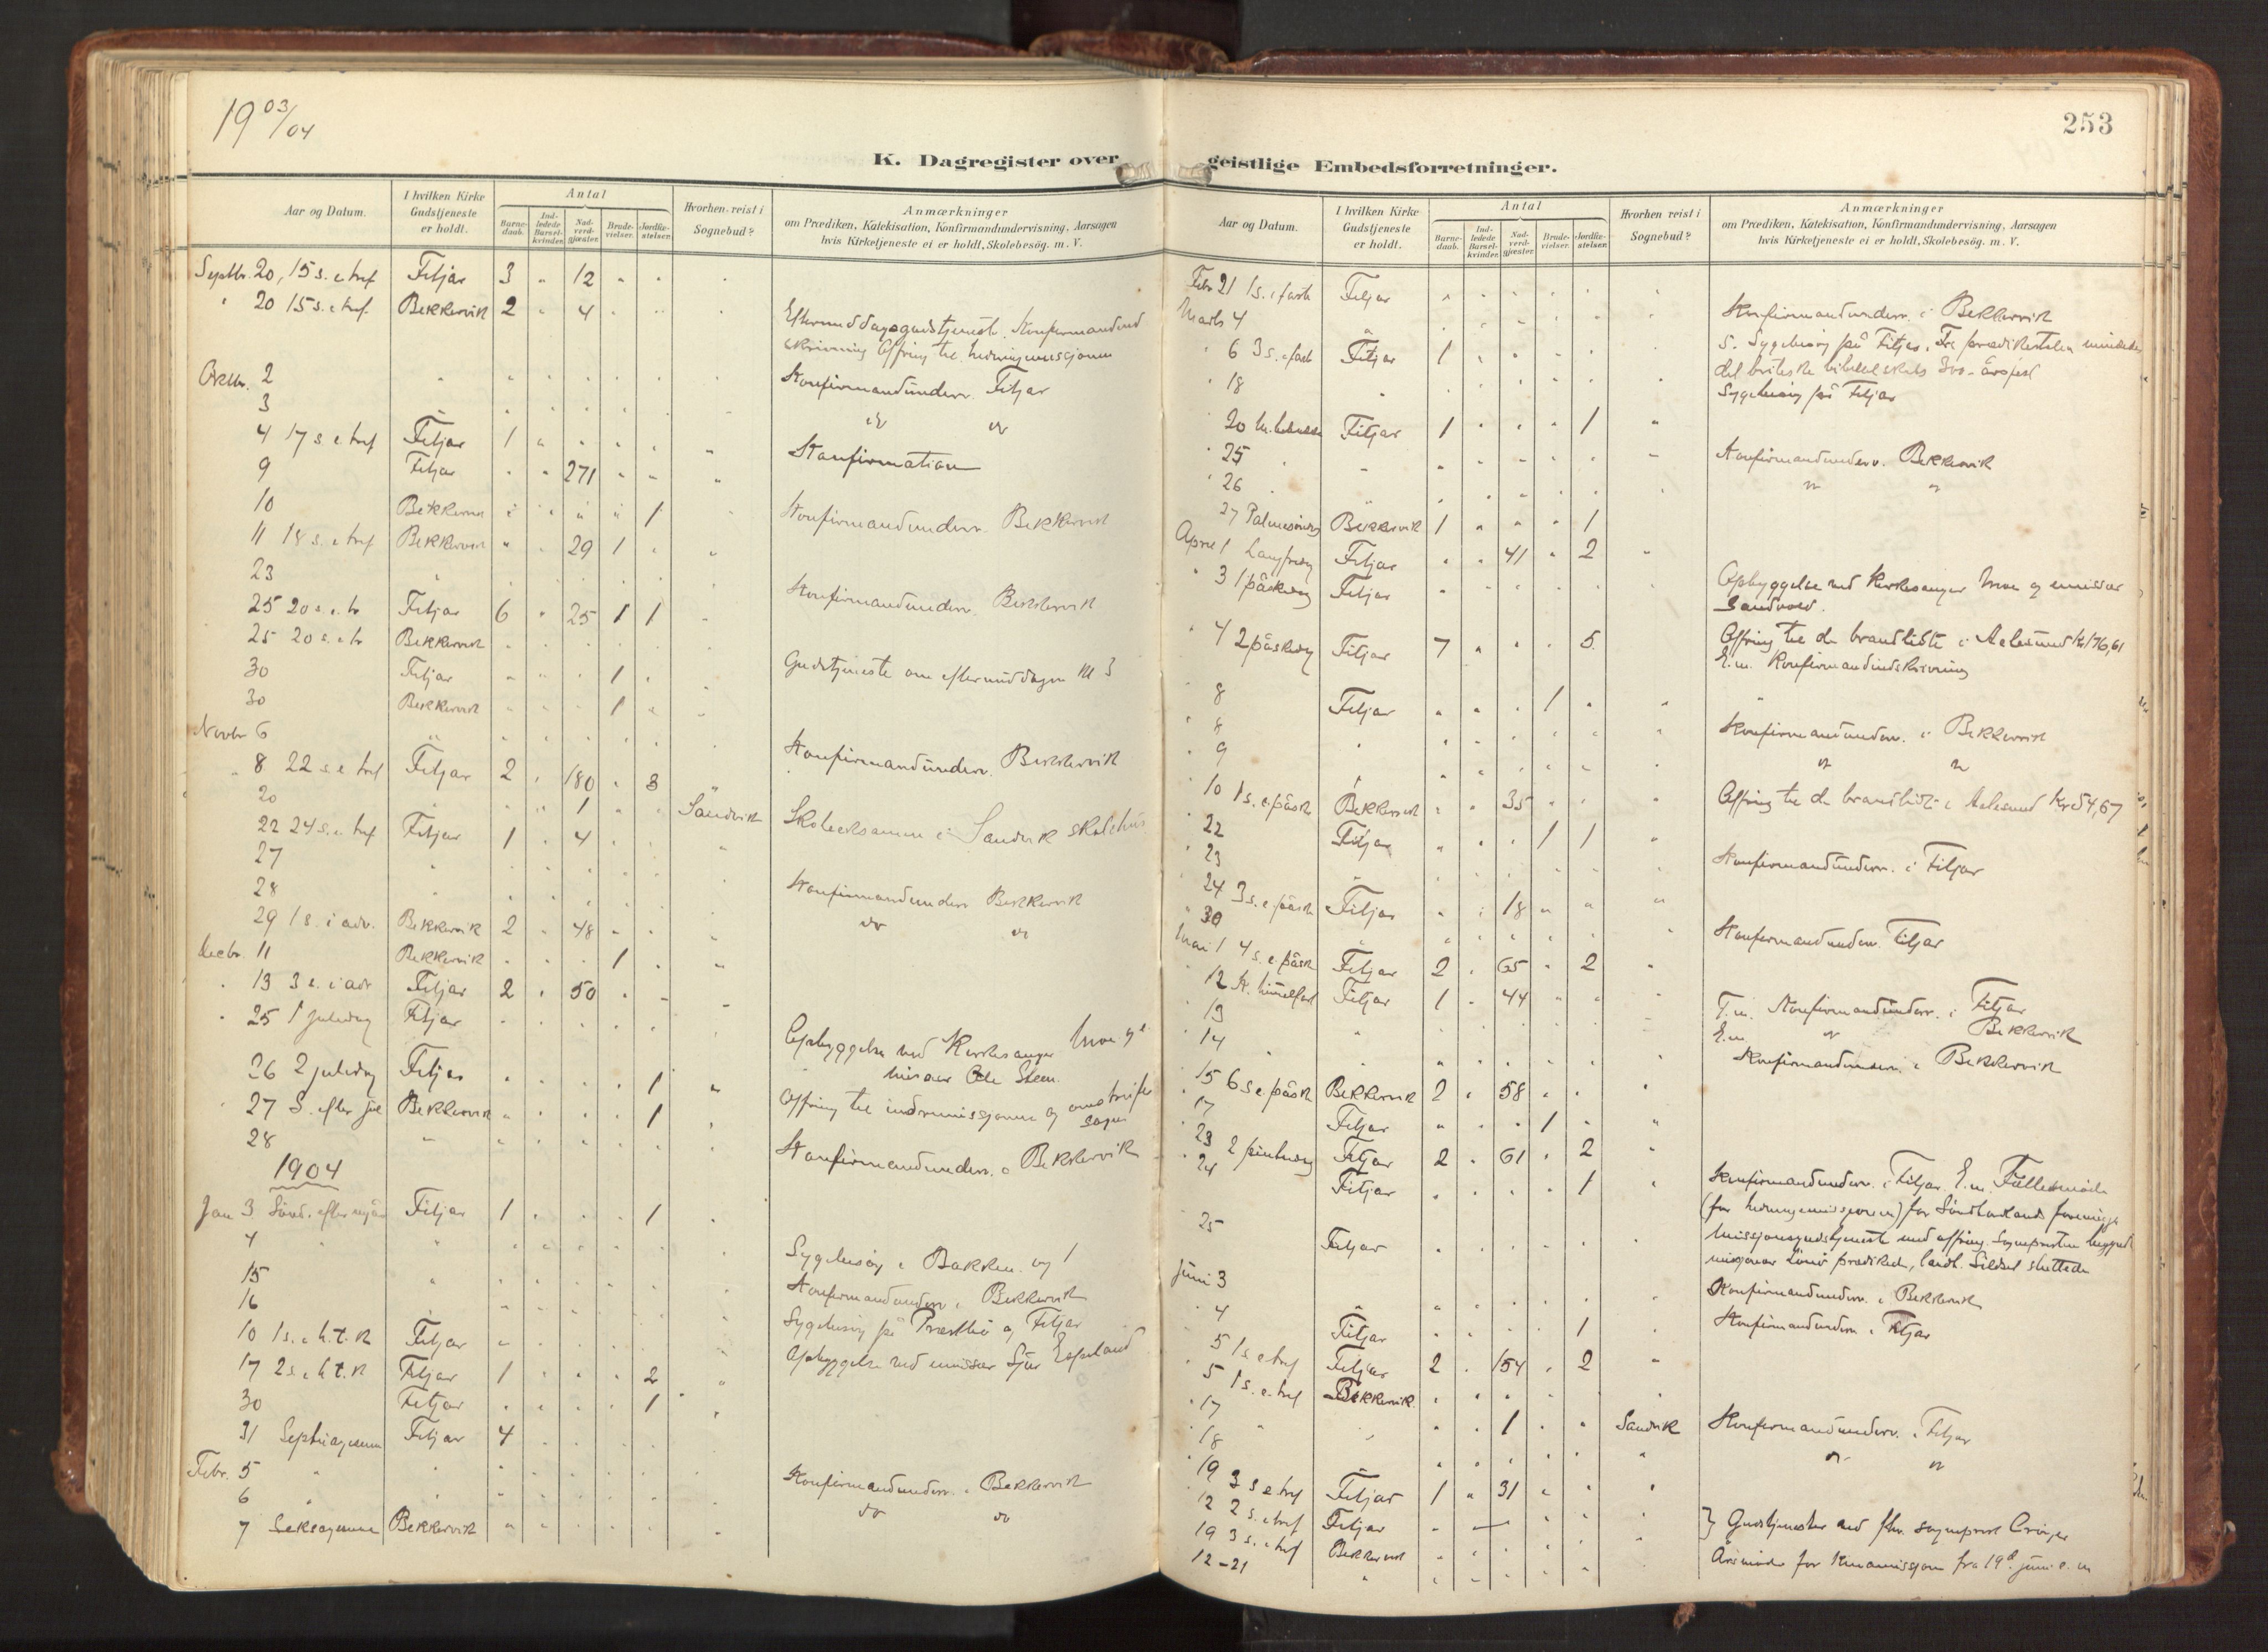 19 03/04
253
K. Dagregister over geistlige Embedsforretninger.
Aar og Datum.
I hvilken Kirke Gudstjeneste er holdt.
Antal
Barne-daab.
Ind-ledede Barsel-kvinder.
Nad-verd-gjæster.
Brude-vielser.
Jordfæ-stelser.
Hvorhen reist i Sognebud?
Anmærkninger
om Prædiken, Katekisation, Konfirmandundervisning, Aarsagen
hvis Kirketjeneste ei er holdt, Skolebesøg. m. V.
Septbr. 20, 15 s. e. tref Fitjar 3 " 12 " " "
" 20 15 s. e. tref. Bekkervik 2 " 4 " " "
Oktbr. 2 Konfirmandunderv. Fitjar
3 do do
4 17 s. e. tref Fitjar 1 " " " " "
9 Fitjar " " 271 " " " Konfirmation
10 Bekkervik " " " " 1 Konfirmandunderv. Bekkervik
11 18 s. e. tref Bekkervik " " 29 1 " "
23 Konfirmandunderv. Bekkervik
25 20 s. e. tr Fitjar 6 " 25 1 1 "
25 20 s. e. tr Bekkervik Gudstjeneste om eftermiddagen kl 3
30 Fitjar " " " 1 " "
30 Bekkervik " " " 1 " "
Novbr 6 Konfirmandunderv. Bekkervik
" 8 22 s. e. tref Fitjar 2 " 180 " 3
20 " " 1 " " Sandvik Skoleeksamen i Sandvik skolehus
22 24 s. e. tref Fitjar 1 " 4 " " "
27 Konfirmandunderv Bekkervik
28 do do
29 1 s. i adv. Bekkervik 2 " 48 " " "
Decbr. 11 Bekkervik " " " 1 " "
" 13 3 s. i adv Fitjar 2 " 50 " " "
" 25 1 juledag Fitjar
26 2 juledag Fitjar " " " " 1 " Opbyggelse ved Kirkesanger
27 S. efter jul Bekkervik " " " " 1 " Offring til indremissjonen og
28 Konfirmandunderv. i Bekkervik
1904
Jan 3 Sönd. efter nyår Fitjar 1 " " " 1 "
4 Sygebesøg i Bakken og 1
15 Konfirmandunderv. i Bekkervik
16 Sygebesøg på og Fitjar
10 1 s. e. h. t. k Fitjar Opbyggelse ved emissær Sjur
17 2 s. e. h. t. k Fitjar 1 " " " 2 "
30 Fitjar " " " " 1 "
31 Septuagesima Fitjar 4
Febr. 5 Konfirmandunderv. i Bekkervik
6 do do
7 Seksagesima Bekkervik
Aar og Datum.
I hvilken Kirke Gudstjeneste er holdt.
Antal
Barne-daab.
Ind-ledede Barsel-kvinder.
Nad-verd-gjæster.
Brude-vielser.
Jordfæ-stelser.
Hvorhen reist i Sognebud?
Anmærkninger
om Prædiken, Katekisation, Konfirmandundervisning, Aarsagen
hvis Kirketjeneste ei er holdt, Skolebesög. m. V.
Febr 21 1 s. i faste Fitjar
Marts 4 Konfirmandunderv. i Bekkervik
" 6 3 s. i faste Fitjar 1 Sygebesög på Fitjar. Fra prædikestolen mindedes
det britiske bibelselskabs 300-årsfest
" 18 Sygebesög på Fitjar
20 Fitjar 1 " " " 1 "
" 25 Konfirmandunderv. Bekkervik
" 26 do do
27 Palmesöndag Bekkervik 1 " " " 1
April 1 Langfredag Fitjar " " 41 " 2 "
" 3 1 påskedag Fitjar Opbyggelse ved Kirkesanger og emissær
Sandvold.
" 4 2 påskedag Fitjar 7 " " " 5 Offring til de brandlidte i Aalesund Kr 176,61
E.m. Konfirmandindskrivning
" 8 Fitjar " " " 1 " "
" 8 Konfirmandunderv. i Bekkervik
" 9 do do
10 1 s. e. påsk Bekkervik " " 35 " " " Offring til de brandlidte i Aalesund Kr 54,67
" 22 Fitjar " " " 1 1 "
" 23 Konfirmandunderv. i Fitjar
24 3 s. e. påsk Fitjar " " 18 " " "
" 30 Konfirmandunderv. Fitjar
Mai 1 4 s. e. påsk Fitjar 2 " 65 " 2 "
12 Kr. himmelfart Fitjar 1 " 44 " " "
13 F.m. Konfirmandunderv. i Fitjar
E.m do Bekkervik
" 14 Konfirmandunderv. i Bekkervik
15 6 s. e. påsk Bekkervik 2 " 58 " "
17 Fitjar " " " 1 " "
23 2 pintsedag Fitjar 2 " 61 " 2 "
24 Fitjar " " " " 1 " Konfirmandunderv. i Fitjar. E.m. Fællesmöde
(for hedningemissionen) for Söndhordlands
25 Fitjar Missionsgudstjeneste med offring. Sognepresten
prædikede,
Juni 3 Konfirmandunderv. i Bekkervik
" 4 Fitjar " " " " 1 " Konfirmandunderv. i Fitjar
5 1 s. e. tref Fitjar 2 " 154 " 2 "
5 1 s. e. tref Bekkervik
" 17 " " 1 " " Sandvik Konfirmandunderv. i Fitjar
" 18 do do
19 3 s e tref Fitjar 1 " 31 " " "
12 2 s. e. tref Fitjar } Gudstjenester ved sogneprest
19 3 s. e. tref Bekkervik
12-21 Årsmöde for Kinamissjon fra 19d juni